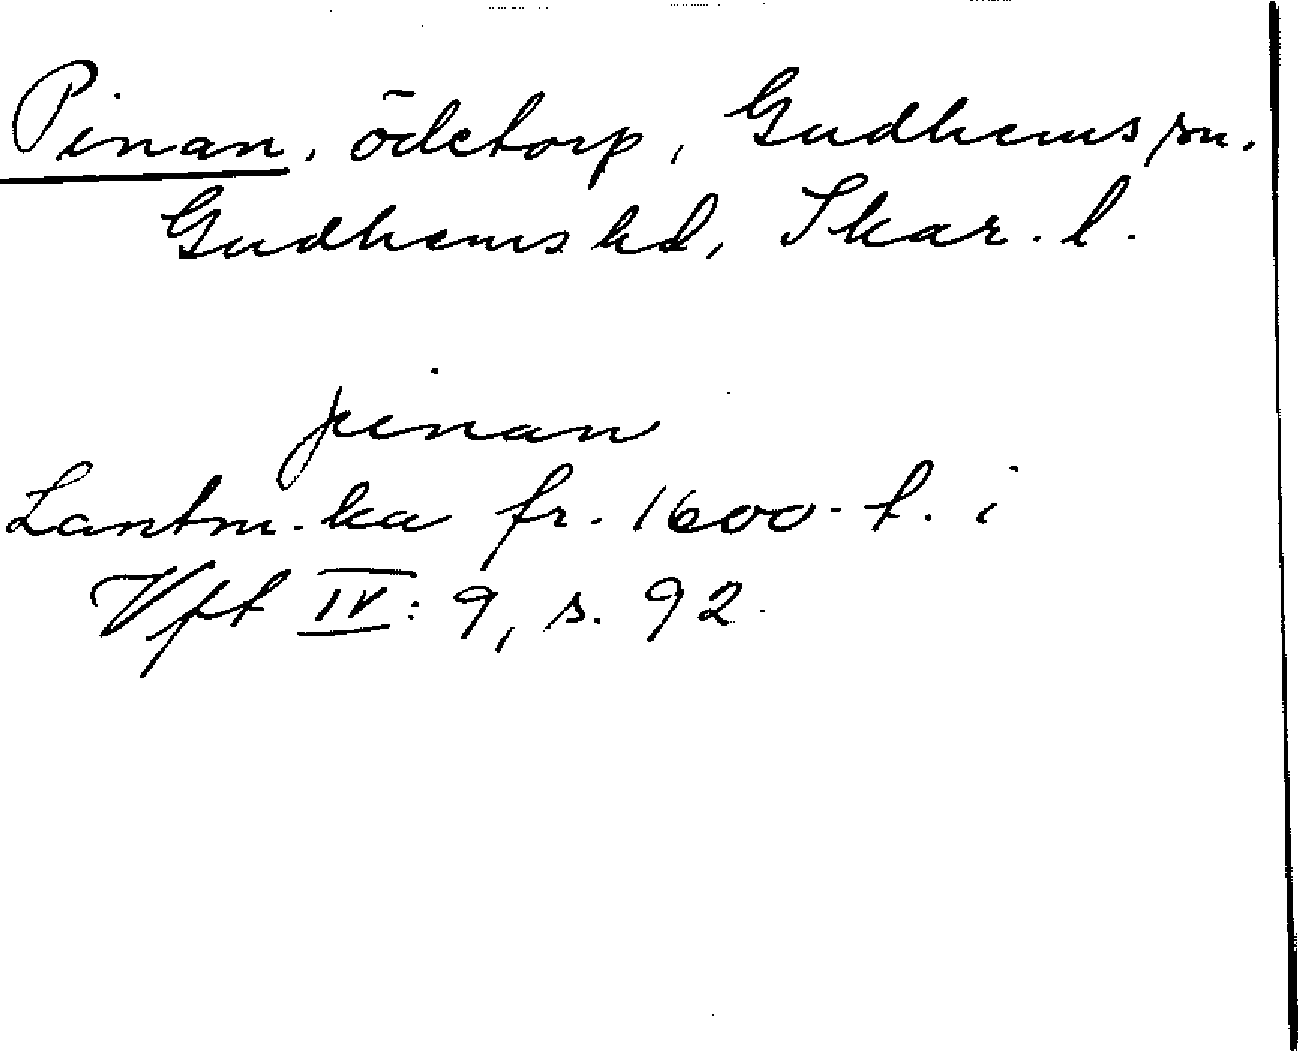 Pinan, ödetorp, Gudhems sn.
Gudhems hd, Skar. l.
pinan
Lantm.-ka fr. 1600-t. i
Vft IV: 9, s. 92